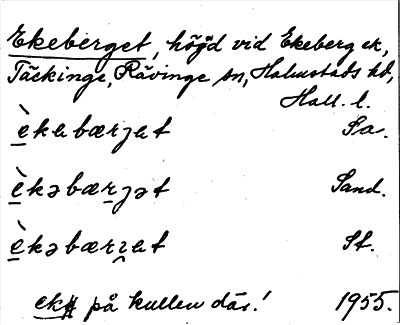 Ekeberget, höjd vid Ekeberg ek,
Täckinge, Rävinge sn, Halmstads hd,
Hall. l.
è̱kebærjet Sa.
è̱kəbæṟjət Sand.
è̱kəbæṟjet St.
på kullen där! 1955.